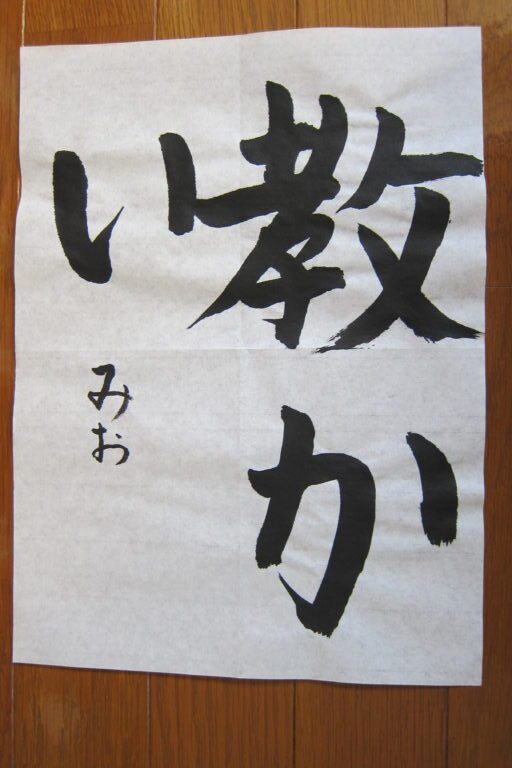 教か
い
みお